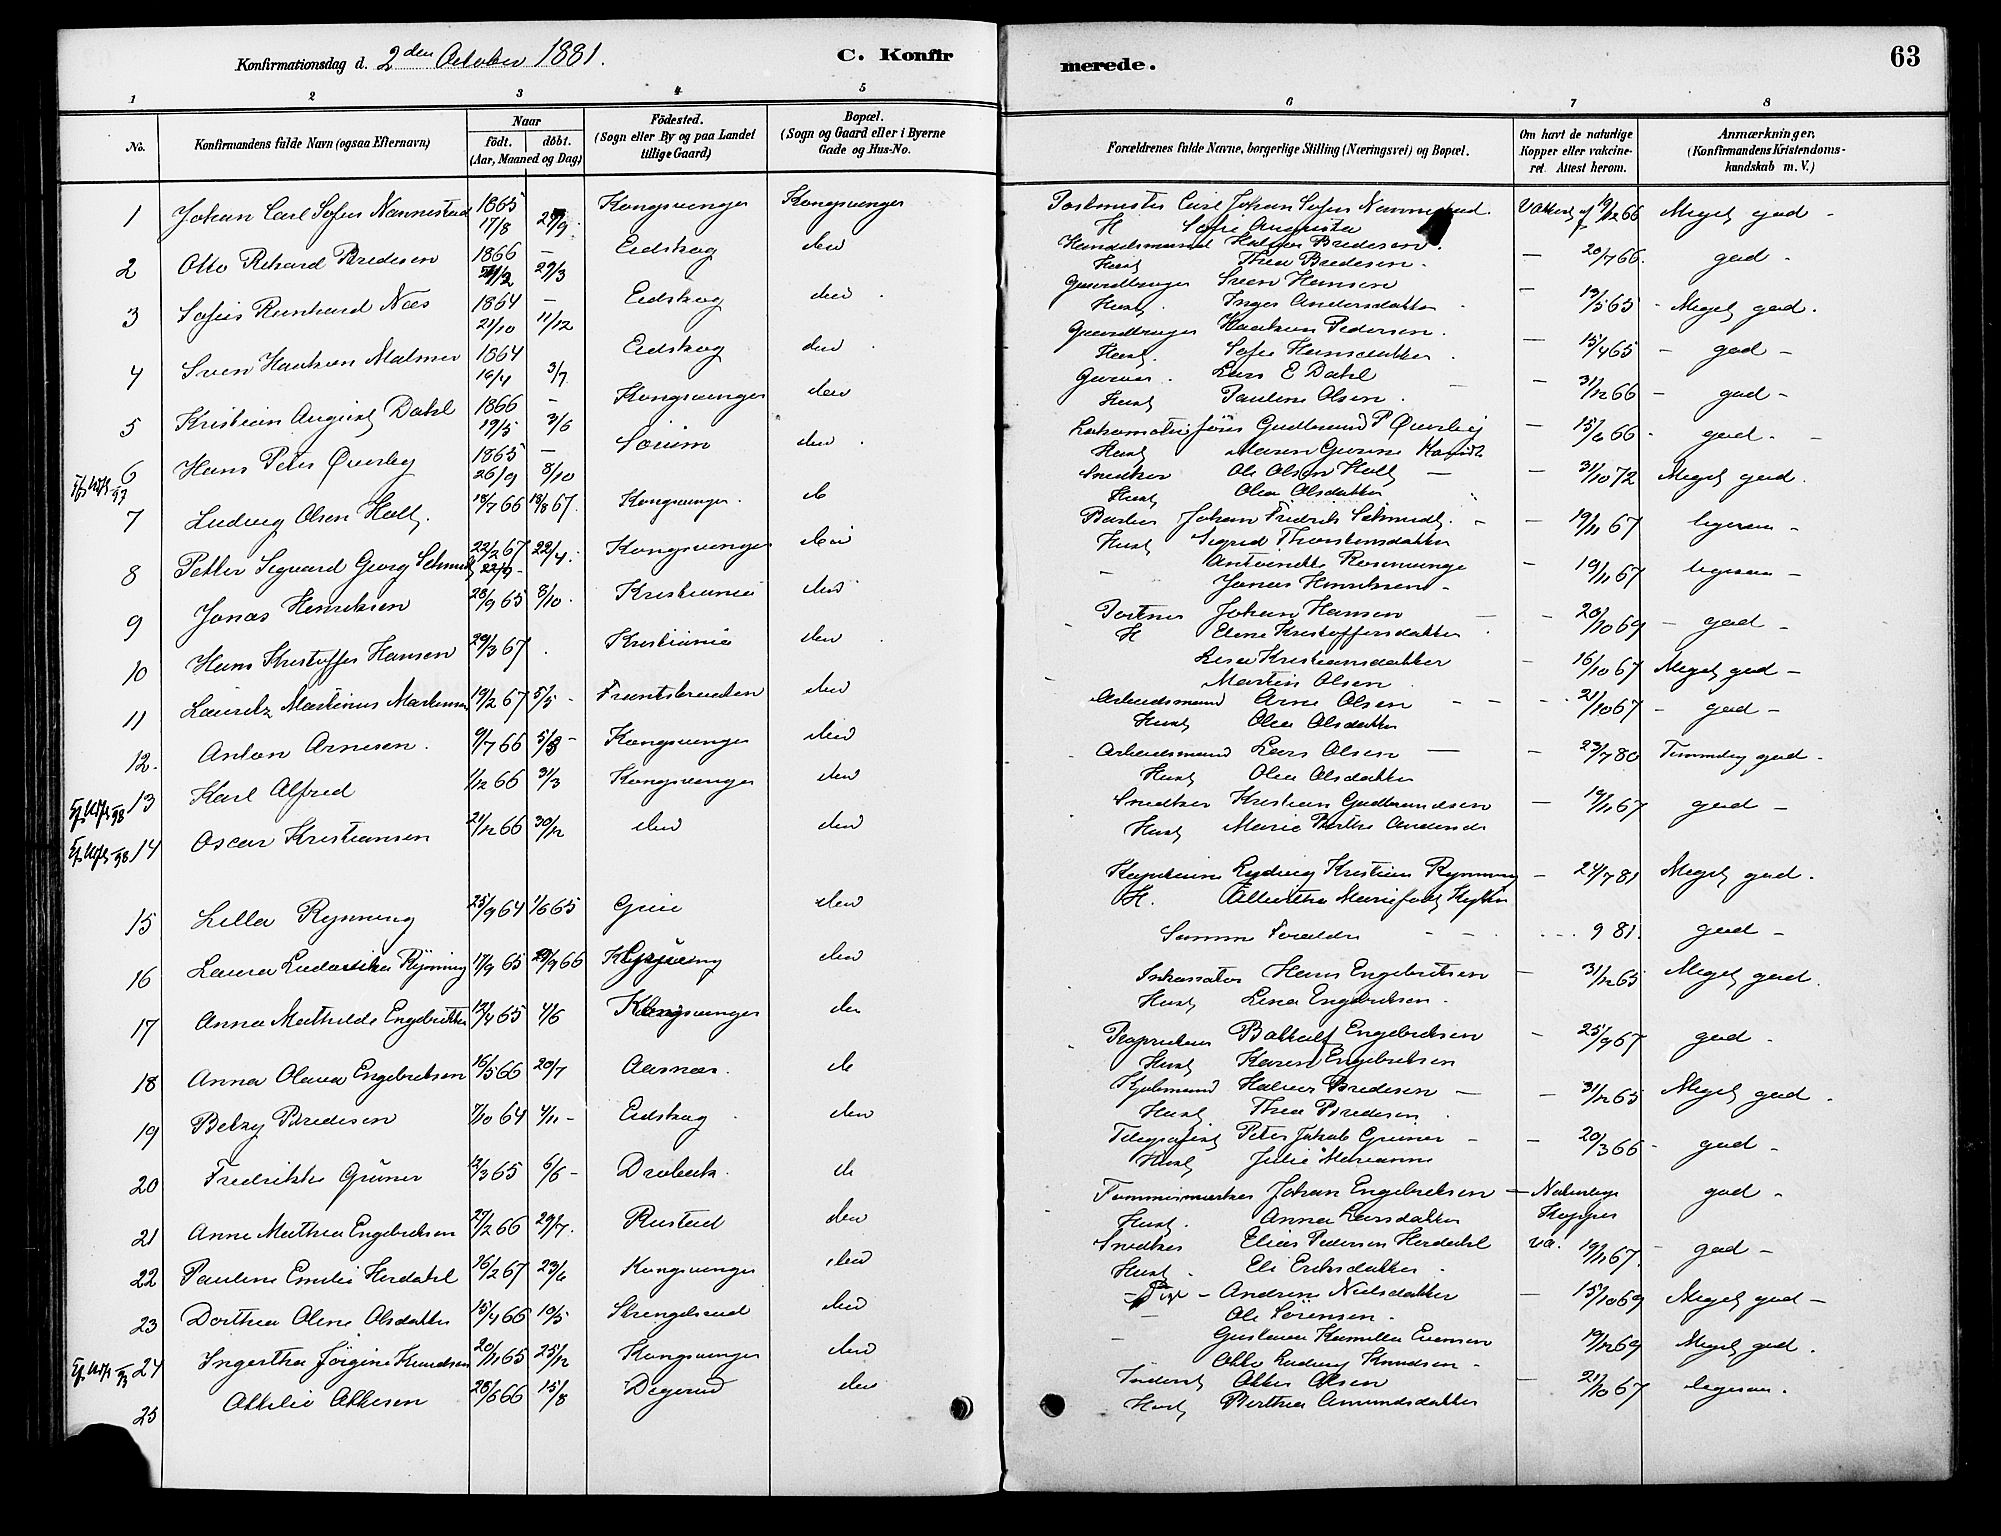 Konfirmationsdag d. 2den October 1881. C. Konfirmerede. 63
1 2 3 4 5 6 7 8
No. Konfirmandens fulde Navn (ogsaa Efternavn) Naar født. døbt. (Aar, Maaned og Dag) Fødested. (Sogn eller By og paa Landet tillige Gaard) Bopæl. (Sogn og Gaard eller i Byerne Gade og Hus-No. Forældrenes fulde Navne, borgerlige Stilling (Næringsvei) og Bopæl. Om havt de naturlige Kopper eller vakcineret. Attest herom. Anmærkninger. (Konfirmandens Kristendomskundskab m. V.)
1 Johan Carl Sofus Nannestad 1865 17/8 Kongsvinger Kongsvinger Postmester Carl Johan Sofus Nannestad Meget god -
H Sofie Augusta
2 Otto Rikard Bredesen 1866 29/3 Eidskog den Handelsmand Halvor Bredesen - 20/7 66. god -
Hust Thea Bredesen -
3 Sofus Reinhard Næs 1864 21/10 11/12 Eidskog den Gaardbruger Sven Hansen - 19/5 65 - Meget god.
Hust. Inger Andersdatter
4 Sven Haakon Malmer 1864 16/4 3/7 Eidskog den Gaardbruger Haakon Pedersen. - 15/4 65 - god -
Hust. Sofie Hansdatter
5 Kristian August Dahl 1866 19/5 3/6 Kongsvinger den Garver. Lars E Dahl - 31/12 66 - god -
Hust Pauline Olsen.
6 Hans Peter Øverby 1865 26/9 8/10 Sørum den Lokomotivfører Gudbrand P Øverby - 15/6 66 - god -
Hust Maren Gurine
7 Ludvig Olsen Holt. 18/7 66 18/8 67. Kongsvinger. d Snedker Ole Olsen Holt - 31/10 72 Meget god.
Hust Olea Olsdatter
8 Petter Sigvard Georg Schmidt 22/2 67 22/4 Kongsvinger den Barber Johan Fredrik Schmidt. - 19/11 67 ligesaa -
Hust Sigrid Thorstensdatter
9 Jonas Henriksen 28/9 65 8/10 Kristiania den Antoinette - 19/11 67 ligesaa -
Jonas Henriksen -
10 Hans Kristoffer Hansen 29/3 67. Kristiania den Portner Johan Hansen - 20/10 69 - god -
H Eline Kristoffersdatter
11 Lauritz Martinus Martinsen 19/2 67 5/5 - den Lisa Kristiansdatter - 16/10 67 Meget god -
Martin Olsen
12. Anton Arnesen. 9/7 66 5/8 - Kongsvinger den Arbeidsmand Arne Olsen - 21/10 67 - god -
Hust Olea Olsdatter
13 Karl Alfred 1/12 66 31/3 Kongsvinger den Arbeidsmand Lars Olsen - 23/7 80 Temmelig god -
Hust Olea Olsdatter
14 Oscar Kristiansen 21/12 66 30/12 den den Snedker Kristian Gudbrandsen - 19/11 67 god -
Hust Marie Berthe Andersd
15 Lilla Rynning 25/9 64 1/6 65 Grue den Kaptein Ludvig Kristian Rynning - 24/7 81 Meget god.
H.
16 Laura Ludovikka Rynning 17/9 65 29/9 66 den Samme Foreldre 9 81. god -
17 Anna Mathilde Engebretsen 13/4 65 4/6 Kongsvinger den Inkassator Hans Engebretsen - 31/12 65 Meget god.
Hust Lina Engebretsen.
18 Anna Olava Engebretsen 16/5 66 20/7 Aasnæs. d Engebretsen - 25/9 67 god.
Hust Karen Engebretsen
19 Betzy Bredesen 7/10 64 4/11 - Eidskog den Halvor Bredesen - 31/12 65 Meget god.
Hust Thea Bredesen.
20 Fredrikke Grüner 12/3 65 6/6 - Drøbak. d Telegrafist Peter Jakob Grüner - 20/3 66 - god -
Hust Julie Marianne
21 Anne Mathea Engebretsen 27/2 66 29/7. Rustad den Tømmermerker Johan Engebretsen - Naturlige Kopper god -
Hust. Anna Larsdatter
22 Pauline Emilie Herdahl 16/2 67 23/6 Kongsvinger den Snedker Elias Pedersen Herdahl va. 19/11 67. - god -
Hust. Eli Eriksdatter
23 Dorthea Oline Olsdatter 15/4 66 10/5 Strengelsrud den - Pige - Andrine Nielsdatter - 15/10 69 Meget god -
Ole Sørensen -
24 Ingertha Jørgine Knudsen 20/11 65 25/12 Kongsvinger den Gustava Kamilla Evensen 19/12 69 Meget god.
Otto Ludvig Knudsen -
25 Ottilie Ottesen 28/6 66 15/8 Digerud den Otter Olsen - 21/10 67 ligesaa.
Hust Berthea Amundsdatter